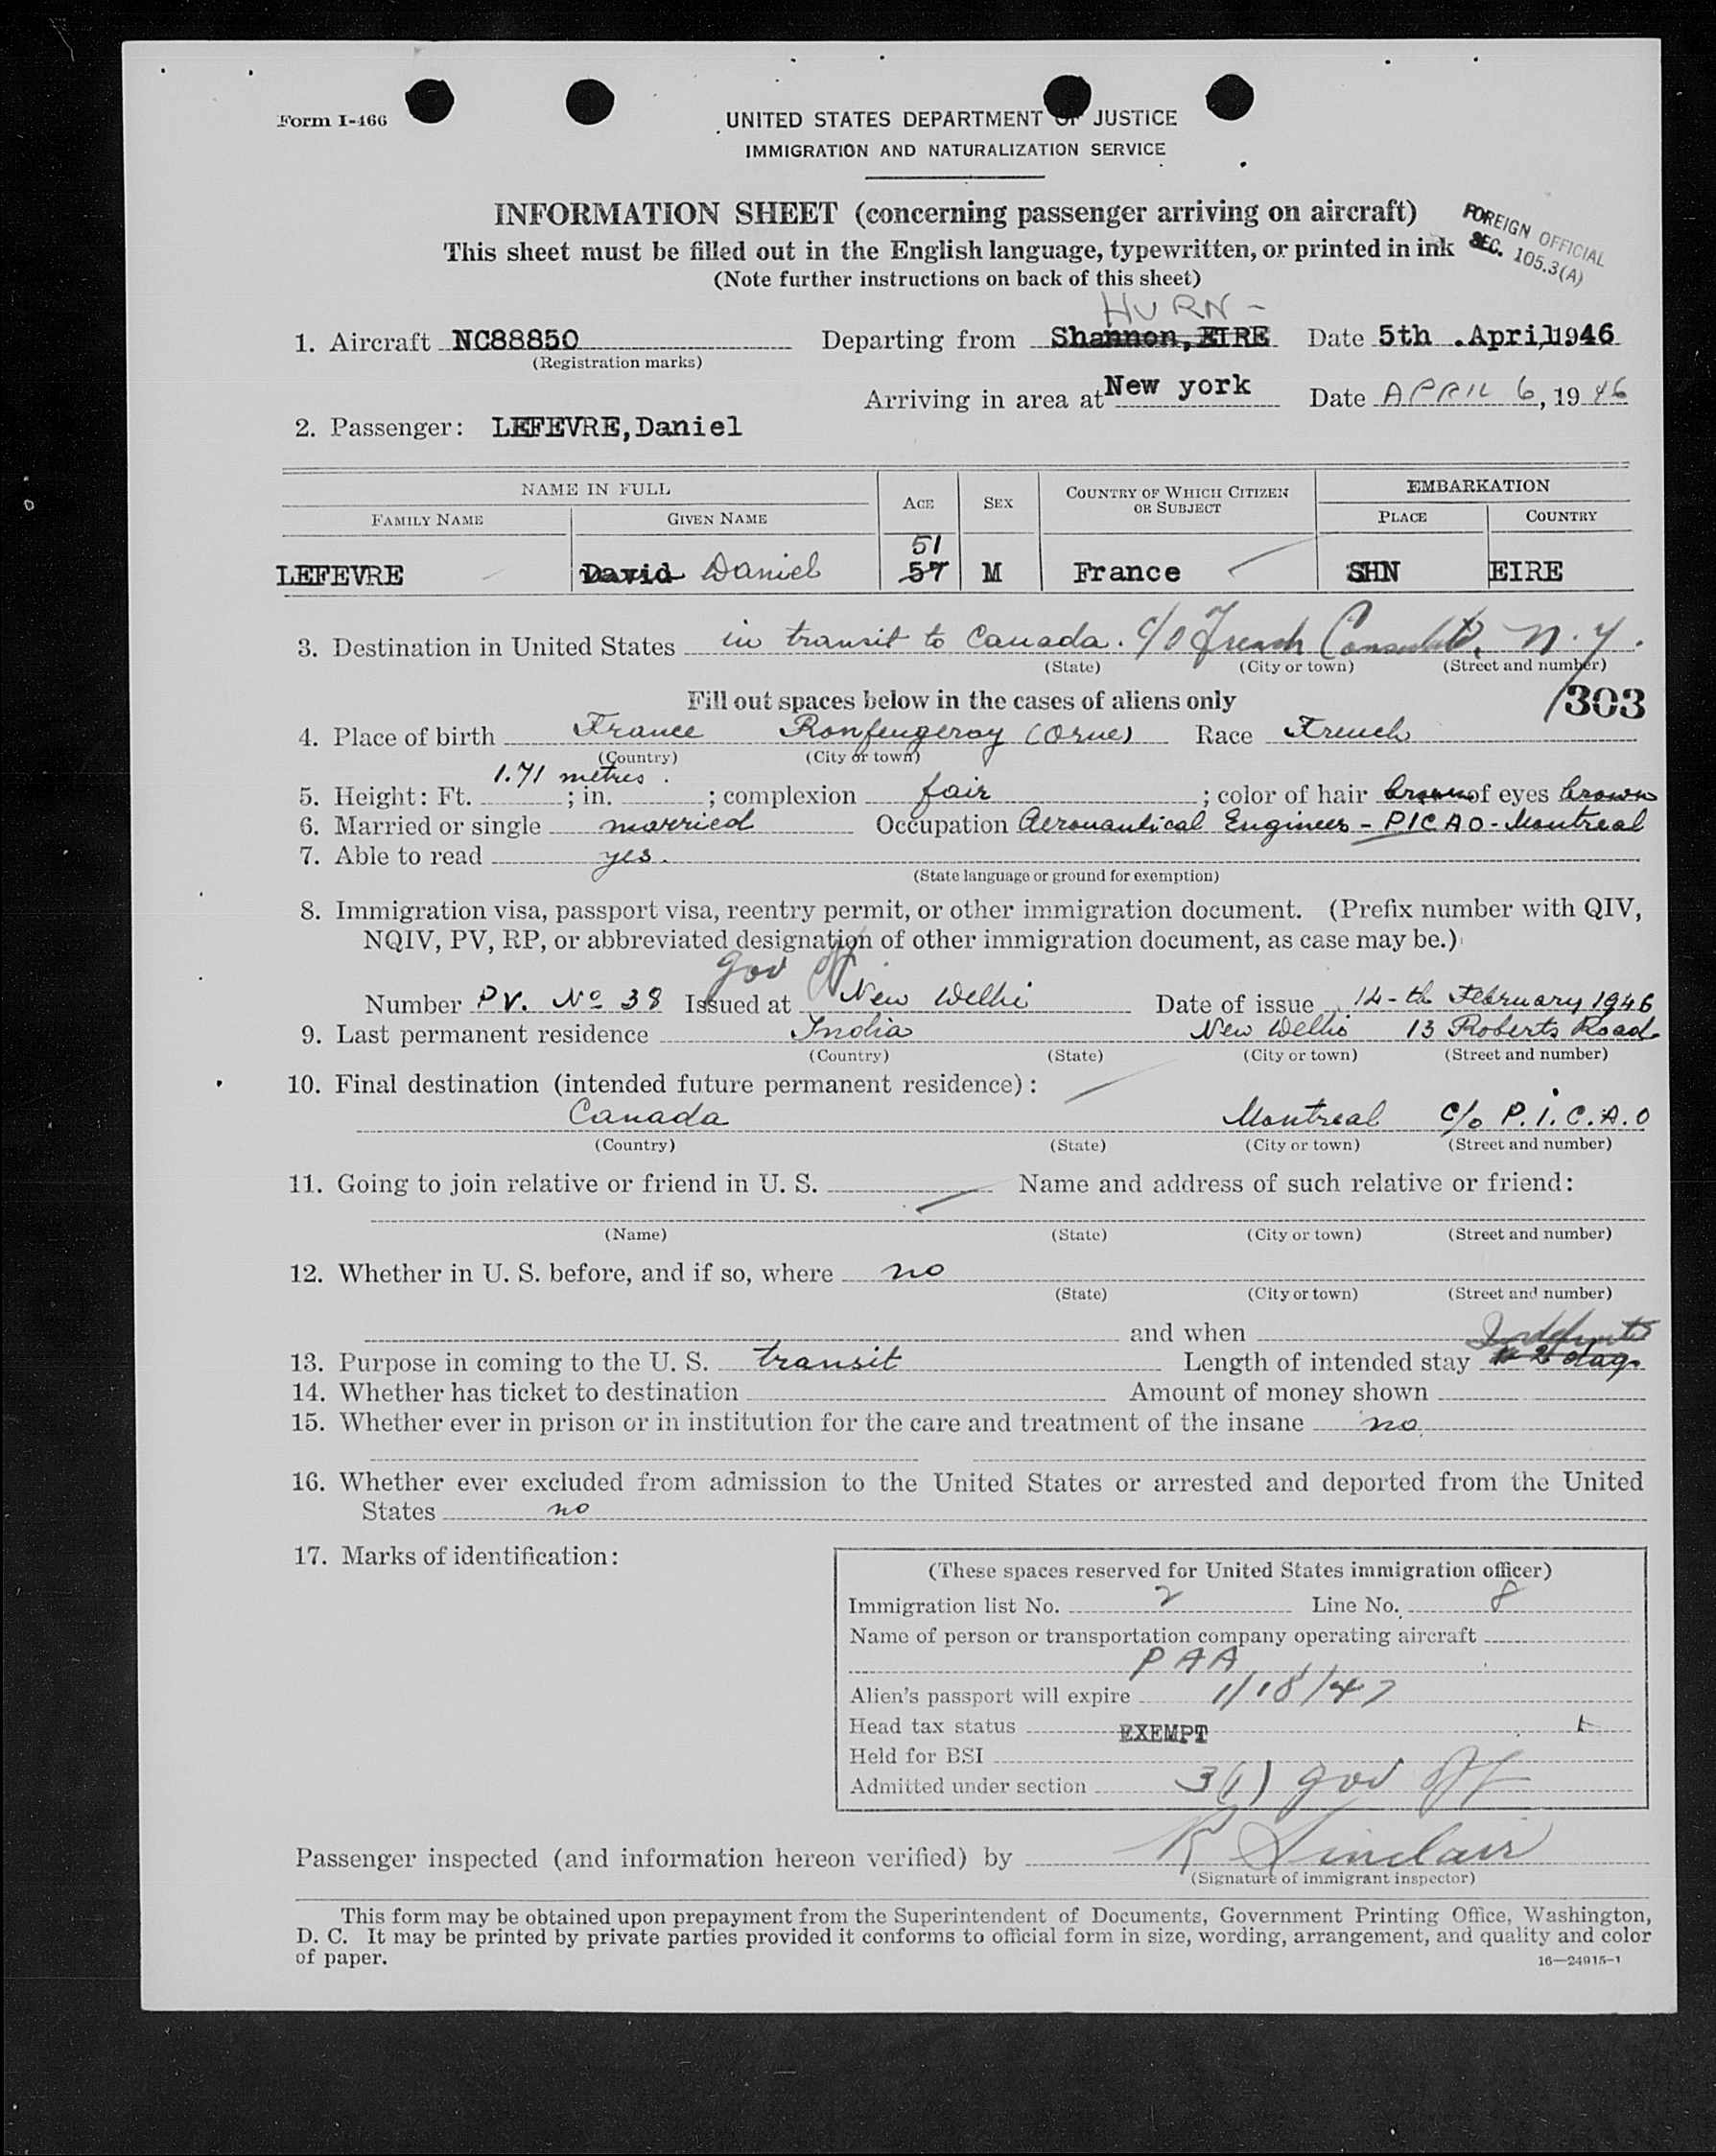 Form I-466
UNITED STATES DEPARTMENT OF JUSTICE
IMMIGRATION AND NATURALIZATION SERVICE
INFORMATION SHEET (concerning passenger arriving on aircraft)
This sheet must be filled out in the English language, typewritten, or printed in ink
(Note further instructions on back of this sheet)
FOREIGN OFFICIAL
SEC. 105.3(A)
HURN -
1. Aircraft NC88850 Departing from Shannon, EIRE Date 5th .April, 1946
(Registration marks)
Arriving in area at New york Date APRIL 6, 19 46
2. Passenger: LEFEVRE, Daniel
NAME IN FULL AGE SEX COUNTRY OF WHICH CITIZEN OR SUBJECT EMBARKATION
FAMILY NAME GIVEN NAME PLACE COUNTRY
51
LEFEVRE David Daniel 57 M France SHN EIRE
3. Destination in United States in transit to Canada. c/o French Consulate, N.Y.
(State) (City or town) (Street and number)
Fill out spaces below in the cases of aliens only
303
4. Place of birth France Ronfeugeray (Orne) Race French
(Country) (City or town)
1.71 metres.
5. Height: Ft. ; in. ; complexion fair ; color of hair brown of eyes brown
6. Married or single married Occupation Aeronautical Engineer - PICAO - Montreal
7. Able to read yes.
(State language or ground for exemption)
8. Immigration visa, passport visa, reentry permit, or other immigration document. (Prefix number with QIV,
NQIV, PV, RP, or abbreviated designation of other immigration document, as case may be.)
Gov Off
Number PV. No 38 Issued at New Delhi Date of issue 14-th February 1946
9. Last permanent residence India New Delhi 13 Roberts Road
(Country) (State) (City or town) (Street and number)
10. Final destination (intended future permanent residence):
Canada Montreal c/o P.I.C.A.O
(Country) (State) (City or town) (Street and number)
11. Going to join relative or friend in U. S. Name and address of such relative or friend:
(Name) (State) (City or town) (Street and number)
12. Whether in U. S. before, and if so, where no
(State) (City or town) (Street and number)
and when
13. Purpose in coming to the U. S. transit Length of intended stay 2 days
14. Whether has ticket to destination Amount of money shown
15. Whether ever in prison or in institution for the care and treatment of the insane no.
16. Whether ever excluded from admission to the United States or arrested and deported from the United
States no
17. Marks of identification:
(These spaces reserved for United States immigration officer)
Immigration list No. 2 Line No. 8
Name of person or transportation company operating aircraft
PAA
Alien's passport will expire 1/18/47
Head tax status EXEMPT
Held for BSI
Admitted under section 3(1) Gov Off
Passenger inspected (and information hereon verified) by R Sinclair
(Signature of immigrant inspector)
This form may be obtained upon prepayment from the Superintendent of Documents, Government Printing Office, Washington,
D. C. It may be printed by private parties provided it conforms to official form in size, wording, arrangement, and quality and color
of paper.
16—24915-1